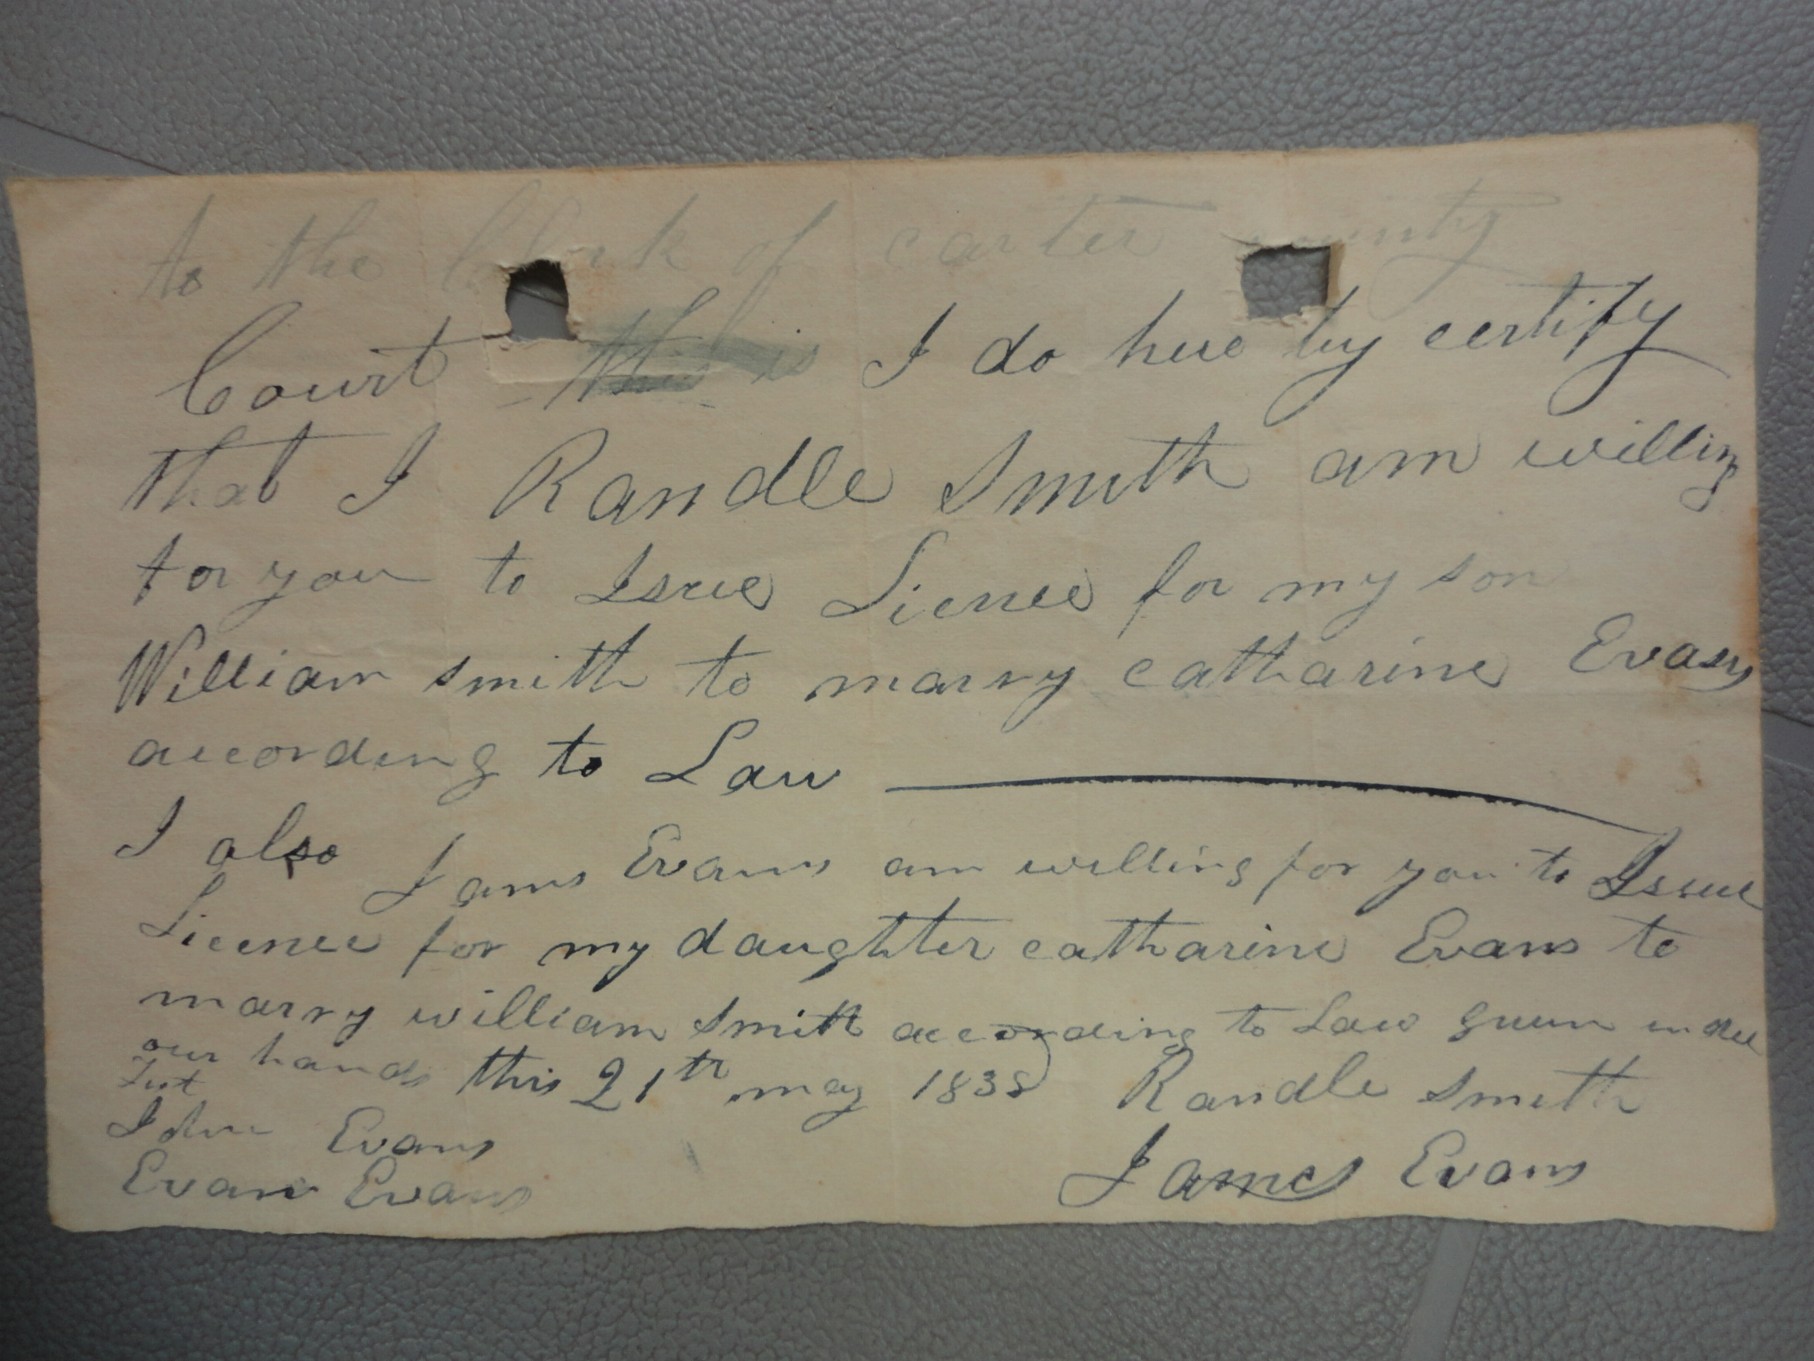 to the Clerk of carter county
Court this is I do here by certify
that I Randle Smith am willing
for you to Issue Licence for my son
William smith to marry catharine Evans
according to Law
I also James Evans am willing for you to Issue
Licence for my daughter catharine Evans to
marry william Smith according to Law given under
our hands this 21th may 1838 Randle Smith
Test
John Evans
Evan Evans James Evans